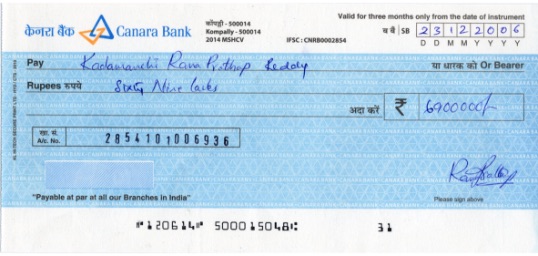 केनरा बैंक Canara Bank
कोंपल्ली - 500014
Kompally - 500014
2014 MSHCV
IFSC : CNRB0002854
Valid for three months only from the date of instrument
SB 23122006
D D M M Y Y Y Y
Pay Kadamanchi Ram Prathap Reddy या धारक को Or Bearer
Rupees रुपये Sixty Nine lacks
अदा करें ₹ 6900000/-
खा. सं.
A/c. No. 2854101006936
"Payable at par at all our Branches in India"
Please sign above
⑈120614⑈ 500015048⑆ 31